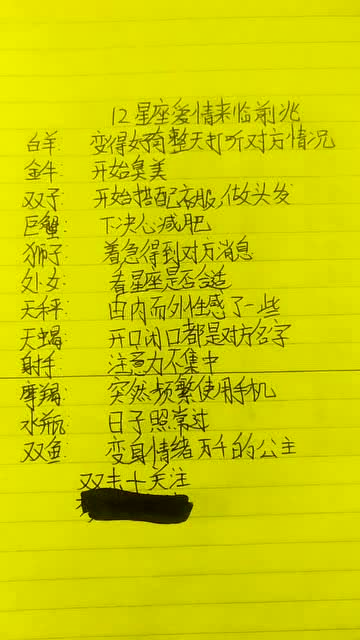 12星座爱情来临前兆
白羊: 变得好奇整天打听对方情况
金牛: 开始臭美
双子: 开始搭配衣服,做头发
巨蟹: 下决心减肥
狮子: 着急得到对方消息
处女: 看星座是否合适
天秤: 由内而外性感了一些
天蝎: 开口闭口都是对方名字
射手: 注意力不集中
摩羯: 突然频繁使用手机
水瓶: 日子照常过
双鱼: 变身情绪万千的公主
双击+关注